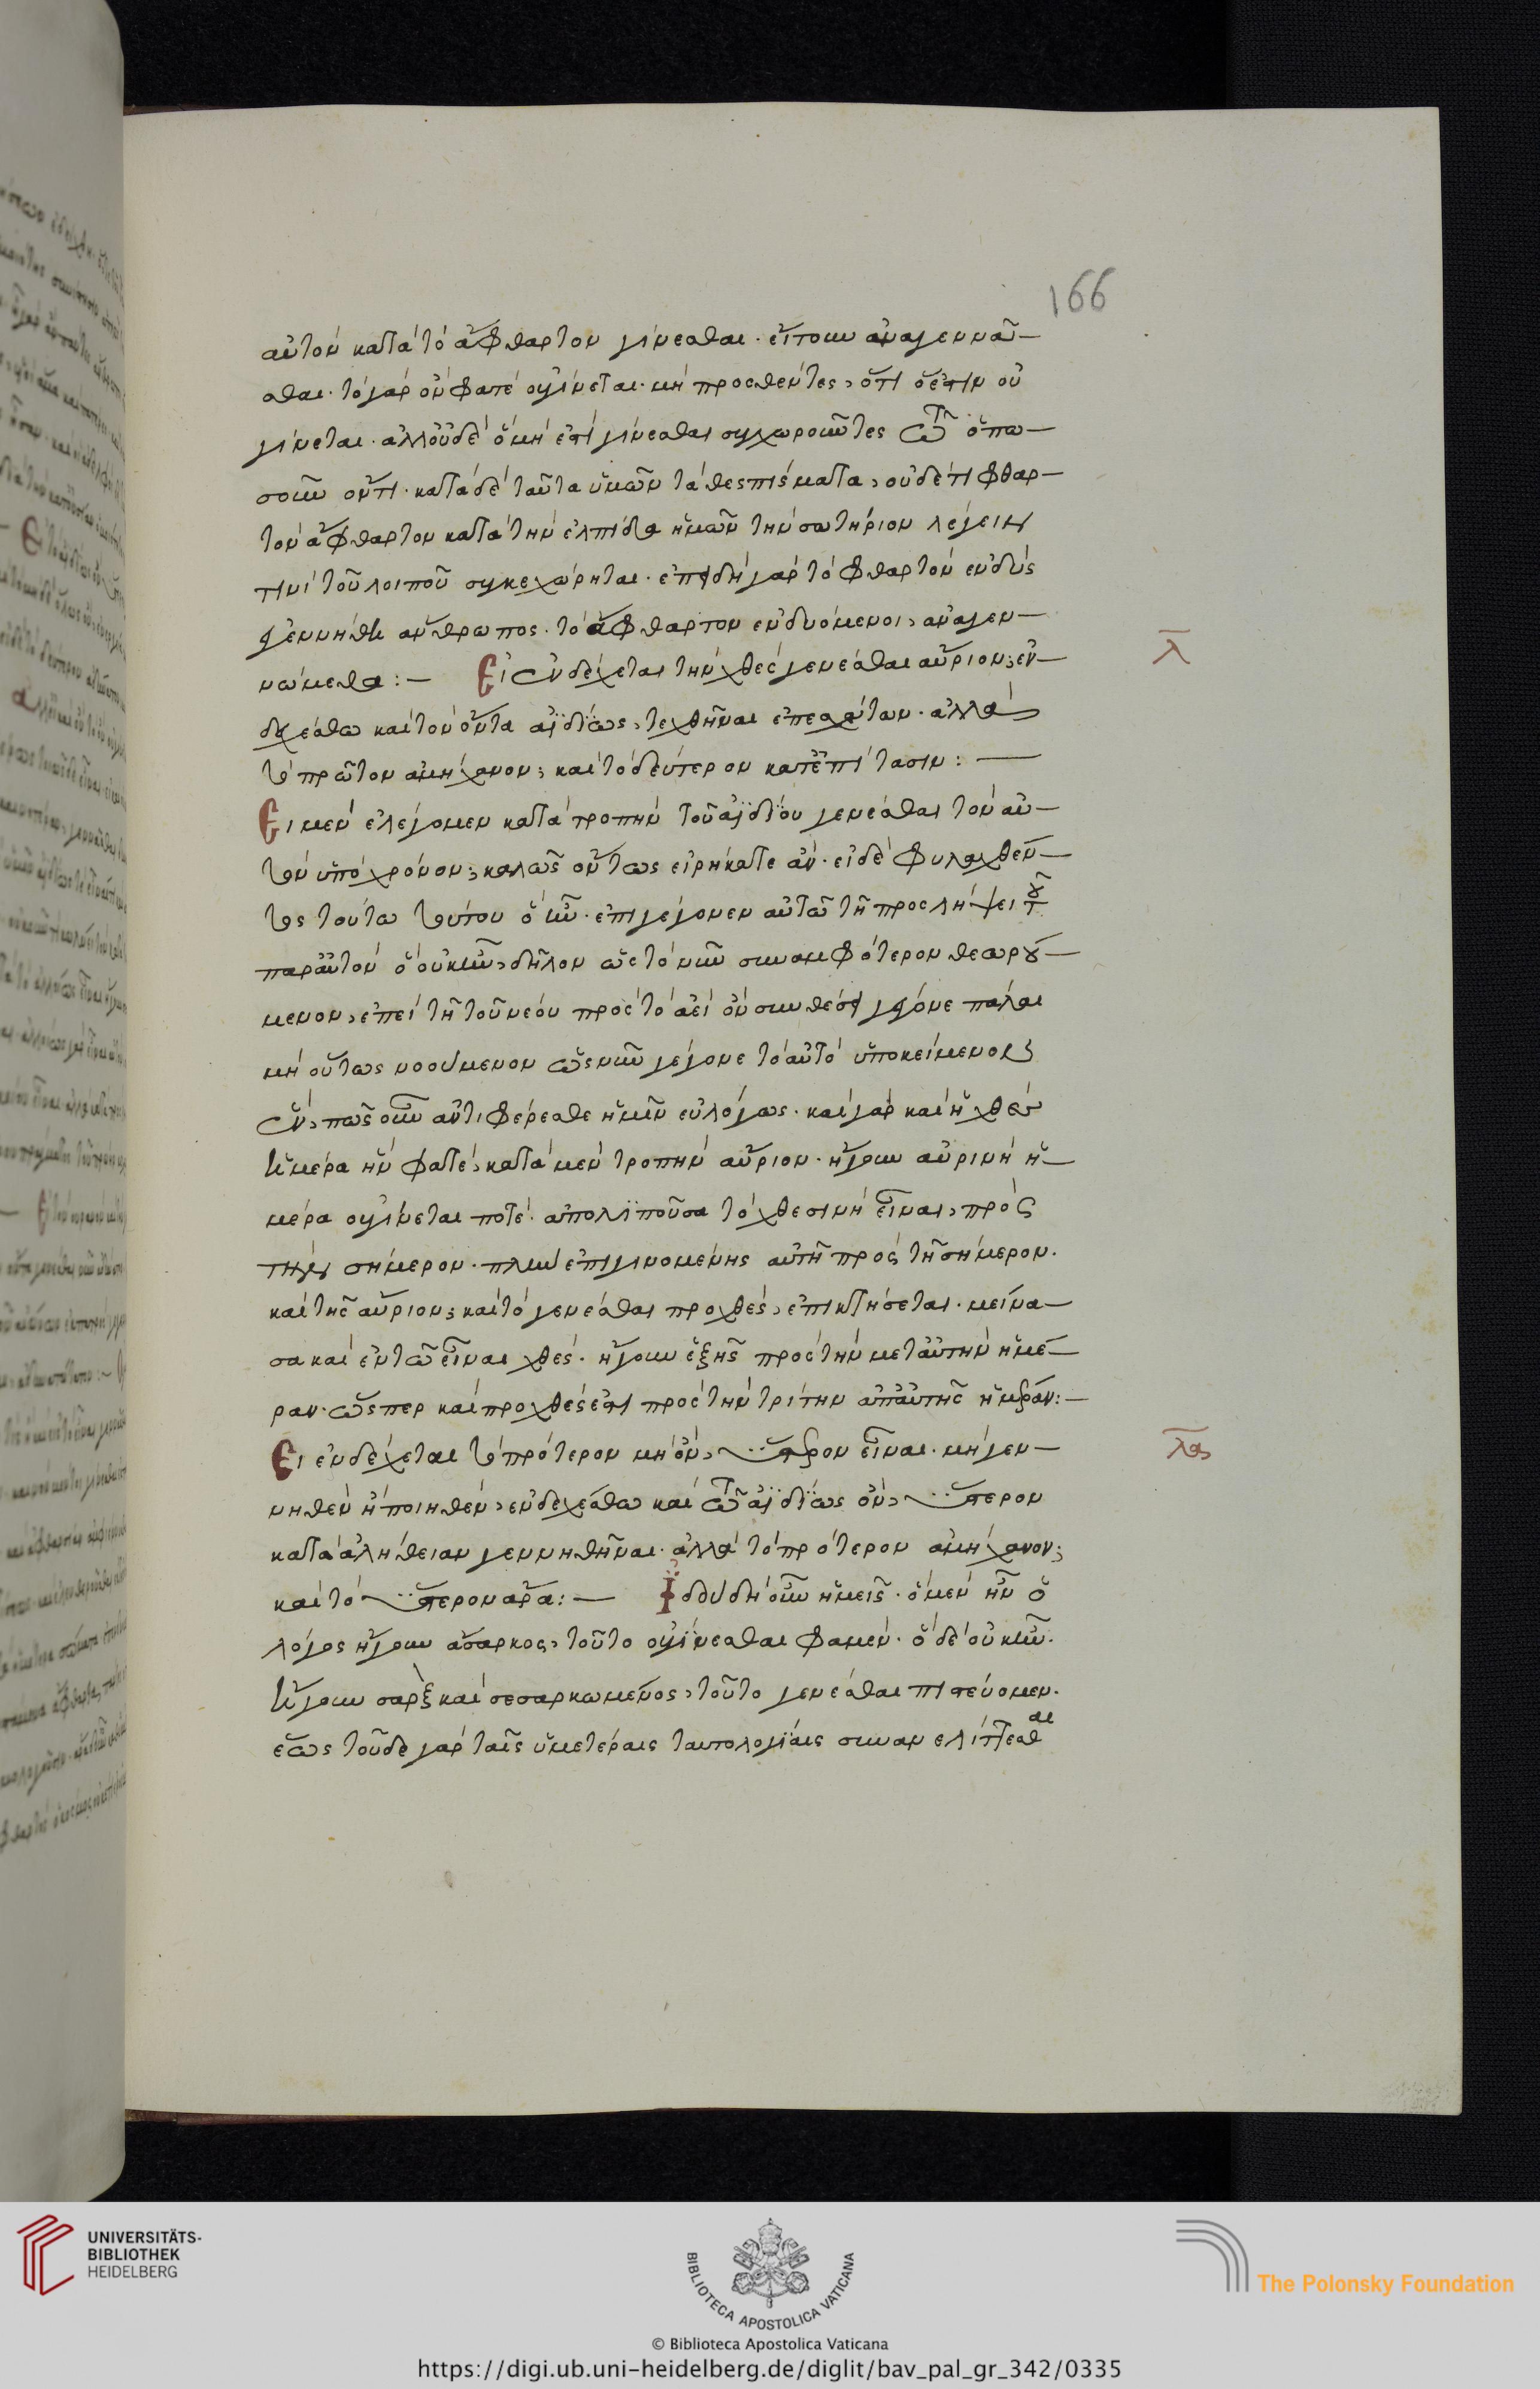 166
αὐτὸν κατὰ τὸ ἄφθαρτον γίνεσθαι· εἴτουν ἀναγεννᾶ–
σθαι· τὸ γὰρ ὂν φατὲ οὐ γίνεται· μὴ προσθέντες, ὅτι ὅ ἐστιν οὐ
γίνεται· ἀλλ' οὐδὲ ὃ μή ἐστι γίνεσθαι συγχωροῦντες ὁπω–
σοῦν ὄντι· κατὰ δὲ ταῦτα ὑμῶν τὰ θεσπίσματα, οὐδέ τι φθαρ–
τὸν ἄφθαρτον κατὰ τὴν ἐλπίδα ἡμῶν τὴν σωτήριον λέγειν
τινὶ τοῦ λοιποῦ συγκεχώρηται· ἐπειδὴ γὰρ τὸ φθαρτὸν ἐνδὺς
ἐγεννήθη ἄνθρωπος· τὸ ἄφθαρτον ἐνδυόμενοι, ἀναγεν–
νώμεθα :– Εἰ ἐνδέχεται τὴν χθὲς γενέσθαι αὔριον; ἐν–
δεχέσθω καὶ τὸν ὄντα ἀϊδίως, τεχθῆναι ἐπ' ἐσχάτων· ἀλλὰ
τὸ πρῶτον ἀμήχανον; καὶ τὸ δεύτερον κατ' ἐπίτασιν : –
Εἰ μὲν ἐλέγομεν κατὰ τροπὴν τοῦ ἀϊδίου γενέσθαι τὸν αὐ–
τὸν ὑπὸ χρόνον; καλῶς οὕτως εἰρήκατε ἄν· εἰ δὲ φυλαχθέν–
τος τούτω τούτου ὃ ἦν· ἐπιγέγονεν αὐτῷ τῇ προσλήψει τοῦ
παρ' αὐτὸν ὃ οὐκ ἦν, δῆλον ὡς τὸ νῦν συναμφότερον θεωρού–
μενον, ἐπεὶ τῇ τοῦ νέου πρὸς τὸ ἀεὶ ὂν συνθέσει γέγονε πάλαι
μὴ οὕτως νοούμενον ὡς νῦν γέγονε τὸ αὐτὸ ὑποκείμενον
ἕν, πῶς οὖν ἀντιφέρεσθε ἡμῖν εὐλόγως· καὶ γὰρ καὶ ἡ χθὲς
ἡμέρα ἣν φατέ, κατὰ μὲν τροπὴν αὔριον· ἤγουν αὐρινὴ ἡ–
μέρα οὐ γίνεται ποτέ· ἀπολιποῦσα τὸ χθεσινὴ εἶναι, πρὸς
τὴν σήμερον· πλὴν ἐπιγινομένης αὐτῇ πρὸς τῇ σήμερον·
καὶ τῆς αὔριον; καὶ τὸ γενέσθαι προχθές, ἐπικτήσεται· μείνα–
σα καὶ ἐν τῷ εἶναι χθές· ἤγουν ἑξῆς πρὸς τὴν μετ' αὐτὴν ἡμέ–
ραν· ὥσπερ καὶ προχθές ἐστι πρὸς τὴν τρίτην ἀπ' αὐτῆς ἡμέραν :–
Εἰ ἐνδέχεται τὸ πρότερον μὴ ὄν, ὕστερον εἶναι· μὴ γεν–
νηθὲν ἢ ποιηθέν, ἐνδεχέσθω καὶ ἀϊδίως ὄν, ὕστερον
κατὰ ἀλήθειαν γεννηθῆναι· ἀλλὰ τὸ πρότερον ἀμήχανον;
καὶ τὸ ὕστερον ἄρα :– Ἰδοὺ δὴ οὖν ἡμεῖς· ὃ μὲν ἦν ὁ
λόγος ἤγουν ἄσαρκος, τοῦτο οὐ γίνεσθαι φαμέν· ὃ δὲ οὐκ ἦν·
ἤγουν σὰρξ καὶ σεσαρκωμένος, τοῦτο γενέσθαι πιστεύομεν·
ἕως τοῦδε γὰρ ταῖς ὑμετέραις ταυτολογίαις συνανελίττεσθαι
λ
λα
UNIVERSITÄTS-
BIBLIOTHEK
HEIDELBERG
BIBLIOTECA APOSTOLICA VATICANA
The Polonsky Foundation
© Biblioteca Apostolica Vaticana
https://digi.ub.uni-heidelberg.de/diglit/bav_pal_gr_342/0335